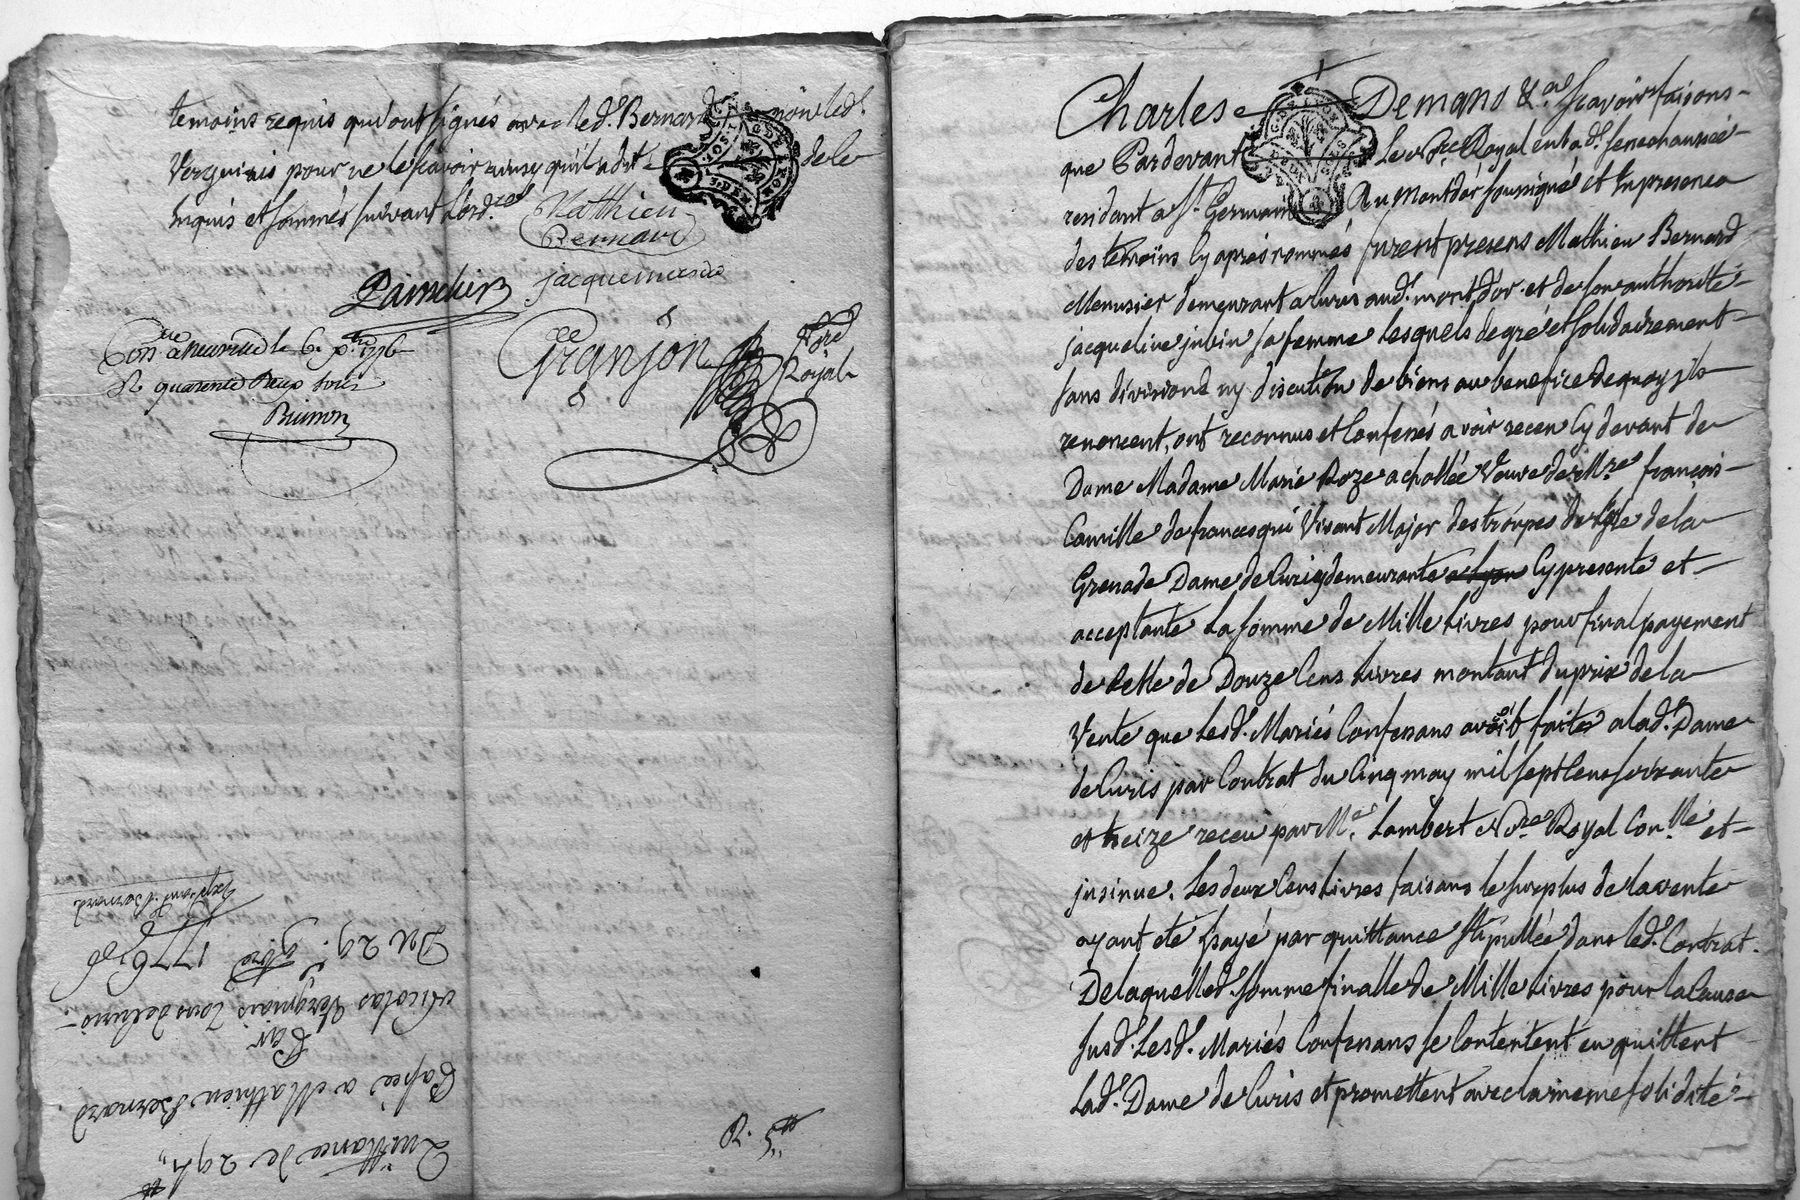 temoins requis qui ont signés avec led. Bernard non led.
Verguiais pour ne le scavoir ainsy qu'il a dit de ce
enquis et sommés suivant l'ord.ce
Mathieu
Bernard
jacquemes
Painchin
Granjon No.re
Royal
Con.lé a neuville le 6. x.bre 1776
R. quarente Deux sous
Brimon
R. 5.tt
Quittance de 29.tt
Passée a Mathieu Bernard.
Par
Nicolas Verguiais Tous de Curis
Du 29.e 9bre 1776
Exp. pour Bernard
Charles Demans &.a scavoir faisons
que Pardevant Le No.re Royal en lad. senechaussée
residant a St. Germain Au Montdor soussigné et en presence
des temoins cy après nommés furent presens Mathieu Bernard
Menusier demeurant a Curis aud. mont d'or et de son authorité
jacqueline jubin sa femme Lesquels de gré et solidairement
sans divisiond ny discution de biens au benefice de quoy ils
renoncent, ont reconnus et Confessés avoir receu Cy devant de
Dame Madame Marie Roze a chollée Veuve de M.re françois
Camille de francesqui Vivant Major des troupes de lisle de la
Grenade Dame de Curis demeurante a Lyon Cy presente et
acceptante La somme de Mille Livres pour final payement
de Celle de Douze Cens Livres montant du prix de la
Vente que Lesd. Mariés Confessans avoit faites a lad. Dame
de Curis par Contrat du Cinq may mil sept Cens soixante
et treize receu par M.e Lambert No.re Royal Con.llé et
insinué. Les deux Cens Livres faisans le surplus de la vente
ayant eté payé par quittance stipullée dans led. Contrat.
De laquelle d. somme finalle de Mille Livres pour la Cause
susd. Lesd. Mariés Confessans se Contentent en quittent
Lad. Dame de Curis et promettent avec la meme solidité